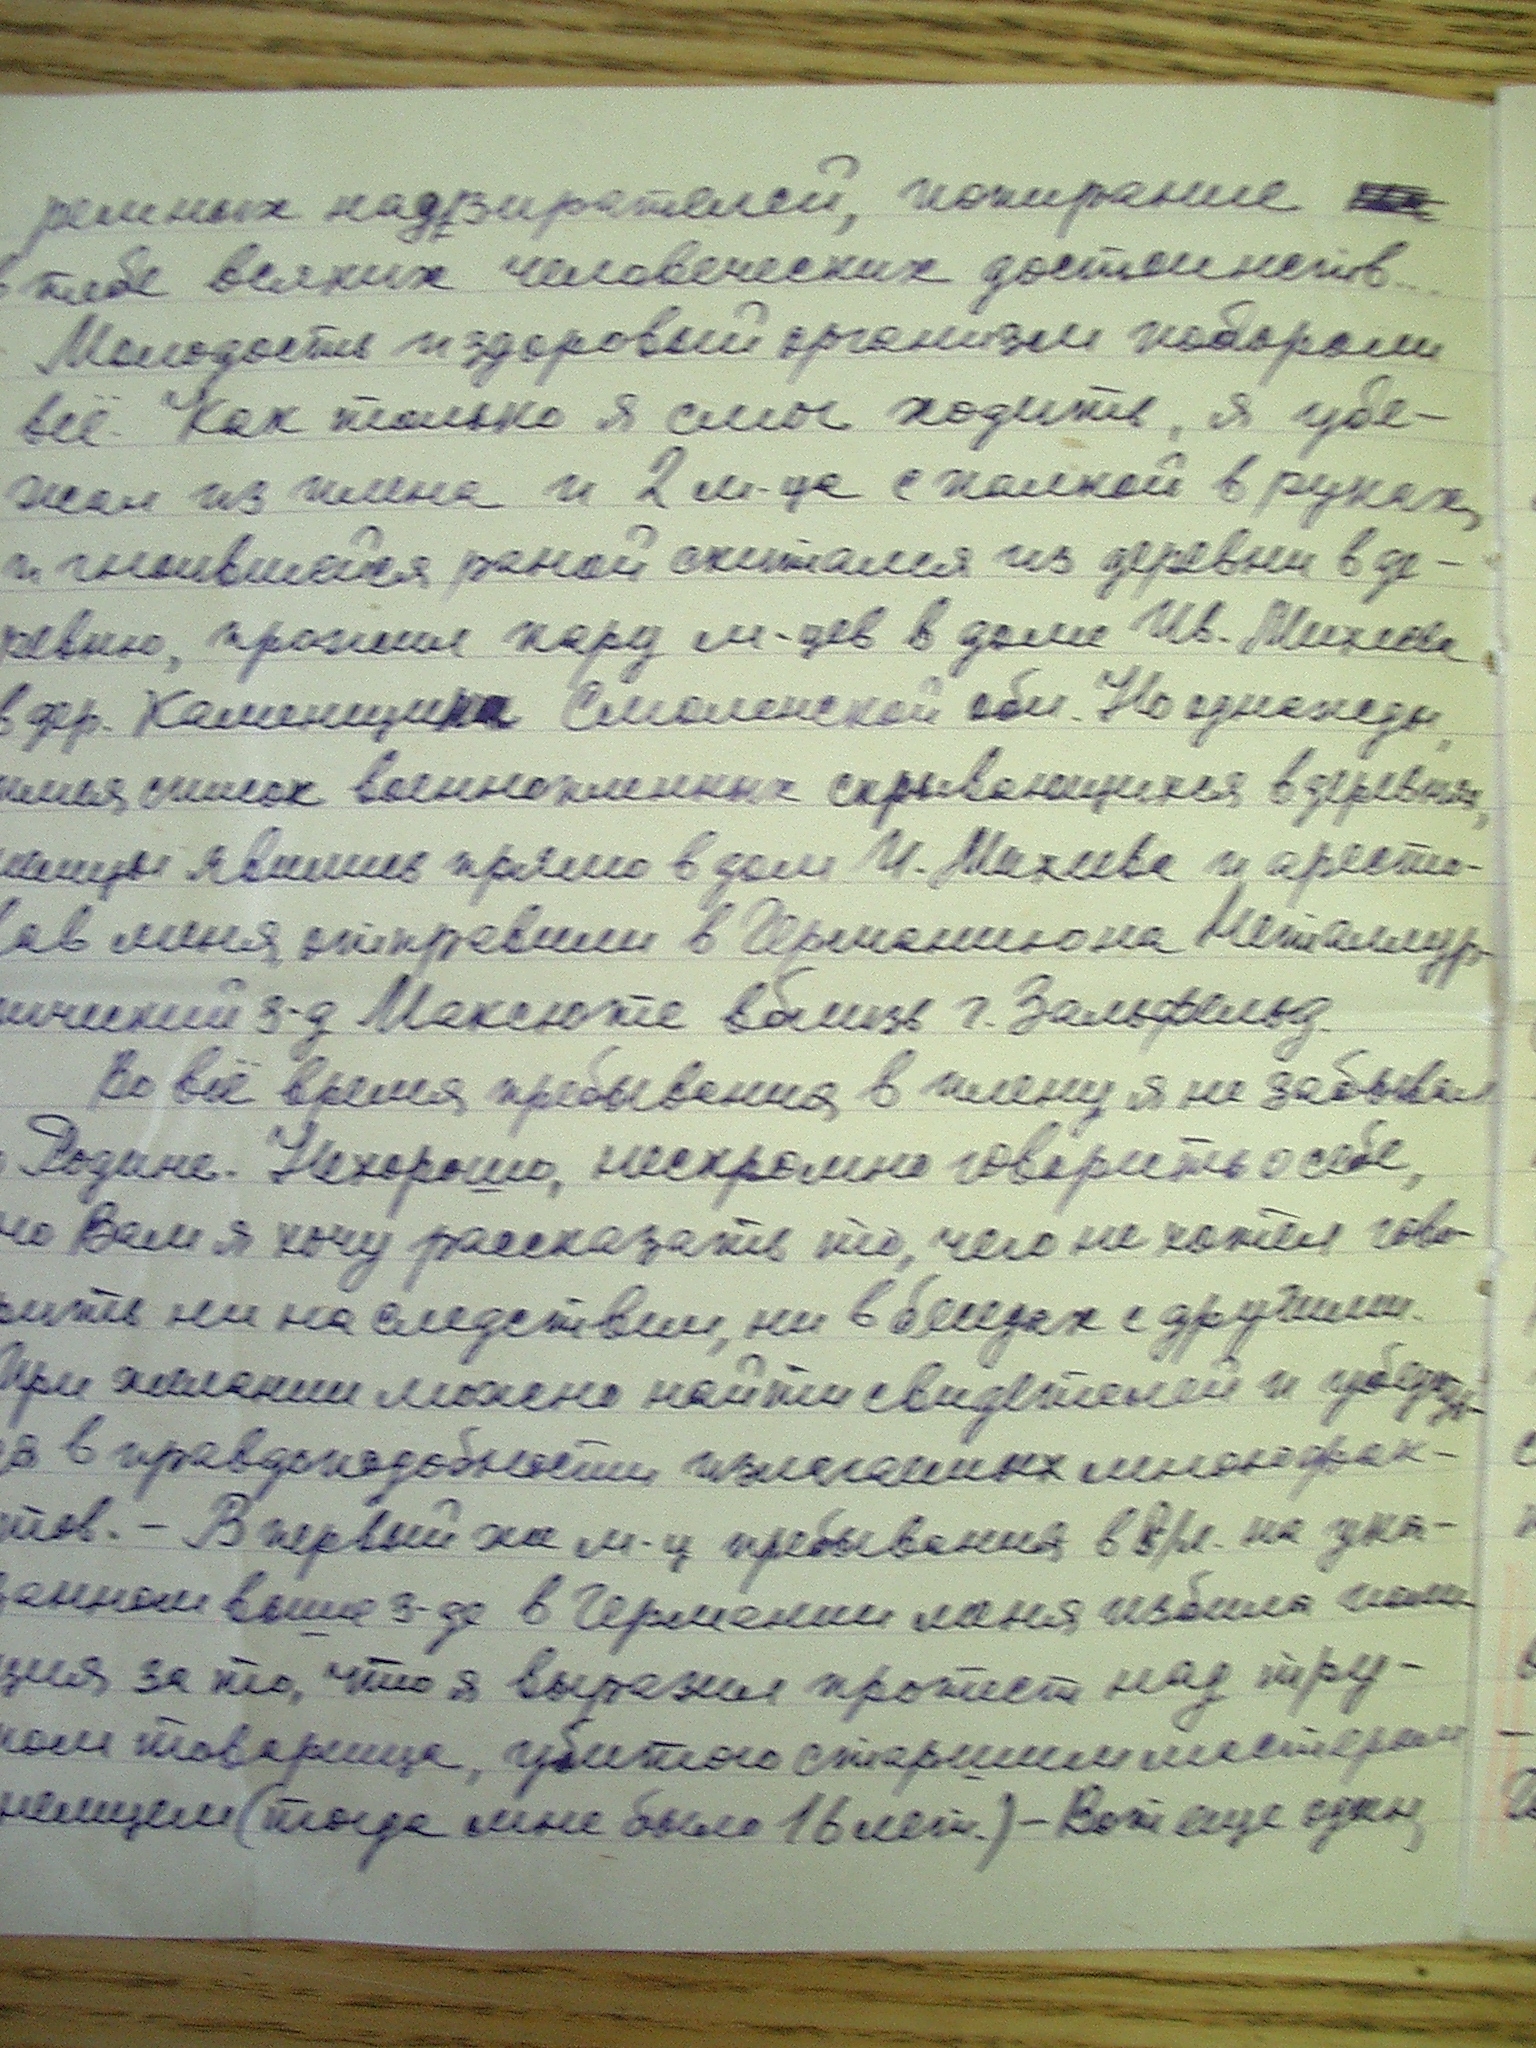 ремных надзирателей, попирание
в тебе всяких человеческих достоинств...
Молодость и здоровый организм побороли
всё. Как только я смог ходить, я убе-
жал из плена и 2 м-ца с палкой в руках,
и гноившейся раной скитался из деревни в де-
ревню, прожил пару м-цев в доме Ив. Михеева
в дер. Каменщина Смоленской обл. Но однажды,
имея список военнопленных скрывающихся в деревнях,
немцы явились прямо в дом И. Михеева и аресто-
вав меня, отправили в Германию на Металлур-
гический з-д Максюте вблизь г. Зальфельд.
Во всё время пребывания в плену я не забывал
о Родине. Нехорошо, нескромно говорить о себе,
но Вам я хочу рассказать то, чего не хотел гово-
рить ни на следствии, ни в беседах с другими.
При желании можно найти свидетелей и убедить-
ся в правдоподобности излагаемых мною фак-
тов. – В первый же м-ц пребывания в на ука-
занном выше з-де в Германии меня избила поли-
ция за то, что я выразил протест над тру-
пом товарища, убитого старшим мастером
немцем (тогда мне было 16 лет.) – Вот еще один